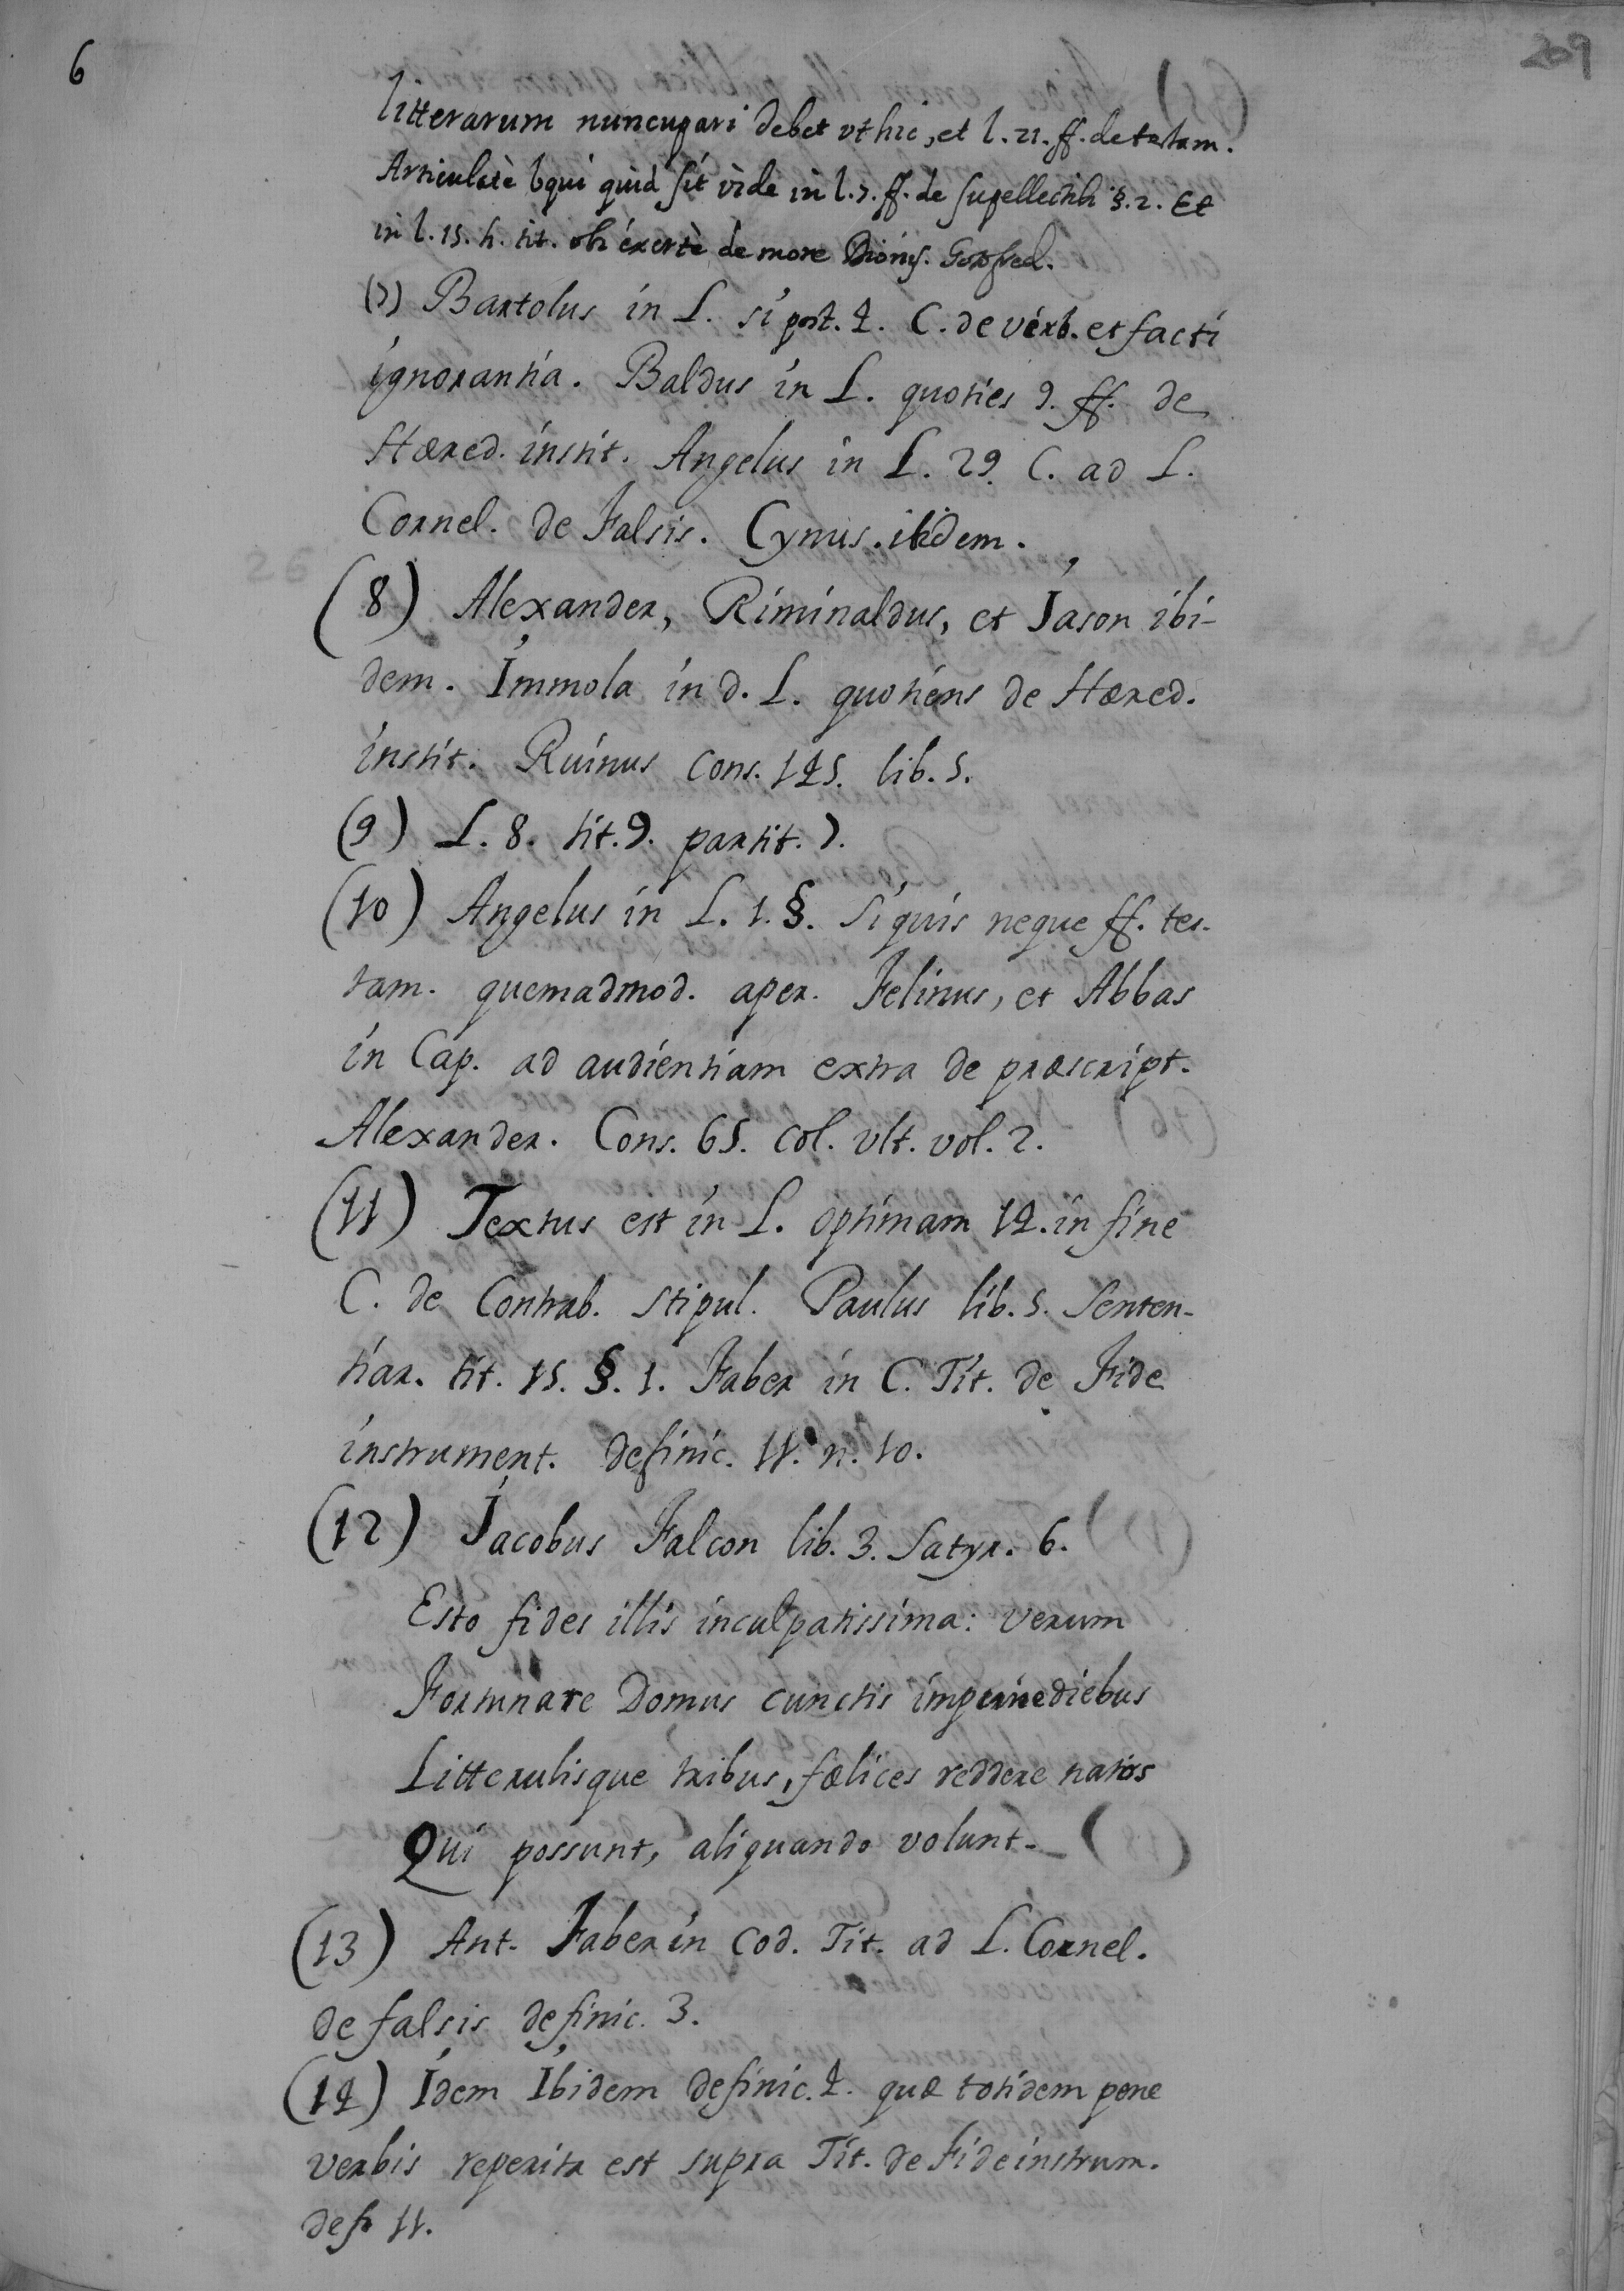 6
209
litterarum nuncupari debet vt hic, et l. 21. ff. de testam.
Articulatè loqui quid sit vide in l. 7. ff. de supellectili §. 2. Et
in l. 15. h. tit. exertè de more Dionys. Gotofred.
(7) Bartolus in L. si post. 4. C. de verb. et facti
ignorantia. Baldus in L. quoties 9. ff. de
Hæred. instit. Angelus in L. 29. C. ad L.
Cornel. de Falsis. Cynus. ibidem.
26
(8) Alexander, Riminaldus, et Jason ibi-
dem. Immola in d. L. quotiens de Hæred.
instit. Ruinus Cons. 145. lib. 5.
(9) L. 8. tit. 9. partit. 7.
(10) Angelus in L. 1. §. Si quis neque ff. tes-
tam. quemadmod. aper. Felinus, et Abbas
in Cap. ad audientiam extra de præscript.
Alexander. Cons. 65. col. vlt. vol. 2.
(11) Textus est in L. optimam 14. in fine
C. de Contrab. Stipul. Paulus lib. 5. Senten-
tiar. tit. 15. §. 1. Faber in C. Tit. de Fide
instrument. definic. 11. n. 10.
(12) Jacobus Falcon lib. 3. Satyr. 6.
Esto fides illis inculpatissima: verum
Fortunare Domus cunctis diebus
Litterulisque tribus, fælices reddere natos
Qui possunt, aliquando volunt-
(13) Ant. Faber in Cod. Tit. ad L. Cornel.
de falsis definic. 3.
(14) Idem Ibidem definic. 4. quæ totidem pene
verbis reperitr est supra Tit. de Fide instrum.
defi 11.